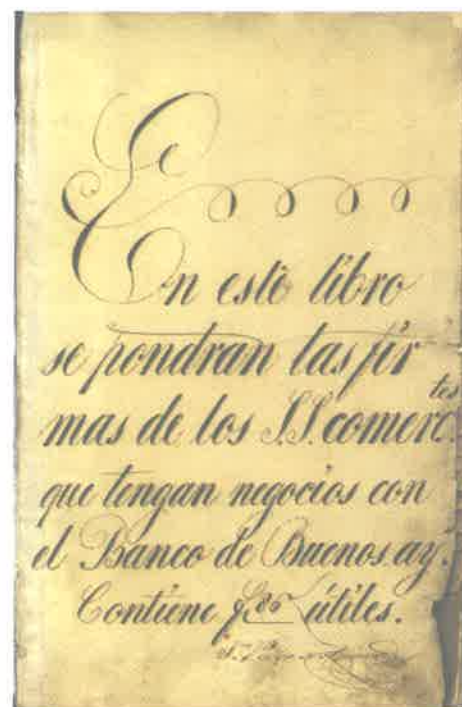 En este libro
se pondran las fir
mas de los S.S. comerc.tes
que tengan negocios con
el Banco de Buenos ay.s
Contiene f. 80 útiles.